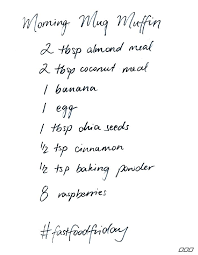 Morning Mug Muffin
2 tbsp almond meal
2 tbsp coconut meal
1 banana
1 egg
1 tbsp chia seeds
1/2 tsp cinnamon
1/2 tsp baking powder
8 raspberries
#fastfoodfriday